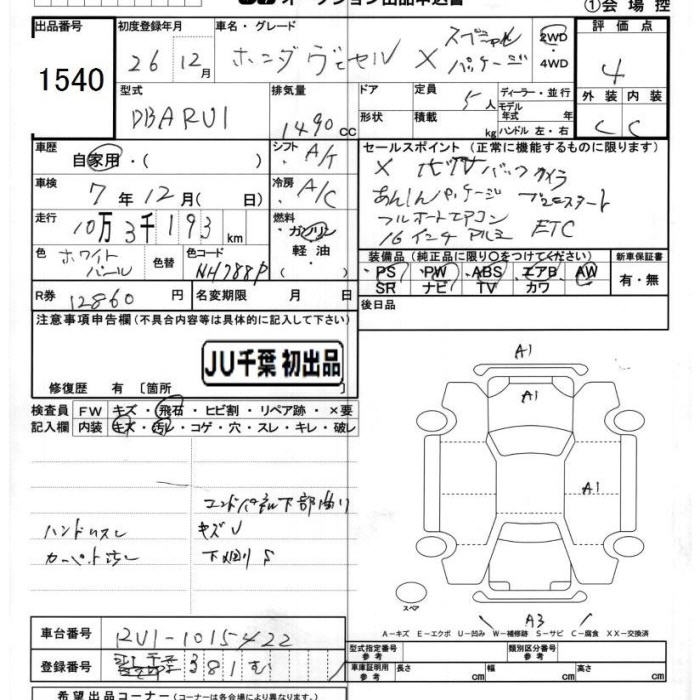 オークション出品申込書
①会場控
出品番号 初度登録年月 車名・グレード 評価点
1540 26 12月 ホンダ ヴェゼル X スペシャルパッケージ 2WD 4WD 4
型式 排気量 ドア 定員 ディーラー・並行 外装 内装
DBA RU1 1490cc 5人 モデル年式 年式 C C
形状 積載 kg ハンドル 左・右
車歴 シフト セールスポイント（正常に機能するものに限ります）
自家用・( ) A/T
車検 7年12月( 日) 冷房 A/C
X ナビTV バックカメラ
あんしんパッケージ プッシュスタート
フルオートエアコン ETC
16インチアルミ
走行 10万3千193km 燃料 ガソリン・軽油・
色 ホワイトパール 色替 色コード NH788P
装備品（純正品に限り○をつけてください） 新車保証書
PS PW ABS エアB AW 有・無
SR ナビ TV カワ
R券 12860円 名変期限 月 日
後日品
注意事項申告欄（不具合内容等は具体的に記入して下さい）
JU千葉 初出品
修復歴 有［箇所 ］
検査員 FW キズ・飛石・ヒビ割・リペア跡・×要
記入欄 内装 キズ・汚レ・コゲ・穴・スレ・キレ・破レ
A1
A1
A1
エンドパネル下部曲り
ハンドルスレ キズU
カーペット汚レ 下廻りS
スペア
A3
A-キズ E-エクボ U-凹み W-補修跡 S-サビ C-腐食 XX-交換済
車台番号 RU1-1015422
型式指定番号 参考 類別区分番号 参考
登録番号 381 む
車庫証明用 参考 長さ cm 幅 cm 高さ cm
希望出品コーナー（コーナーは各会場により異なります。）